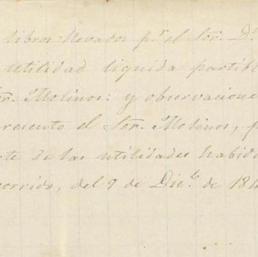 libros llevados pr. el Sor. Dn.
utilidad liquida partibl
or. Molinos: y observacione
presenta el Sor. Molinos, p
te de las utilidades habid
corrido, del 9 de Dice. de 18